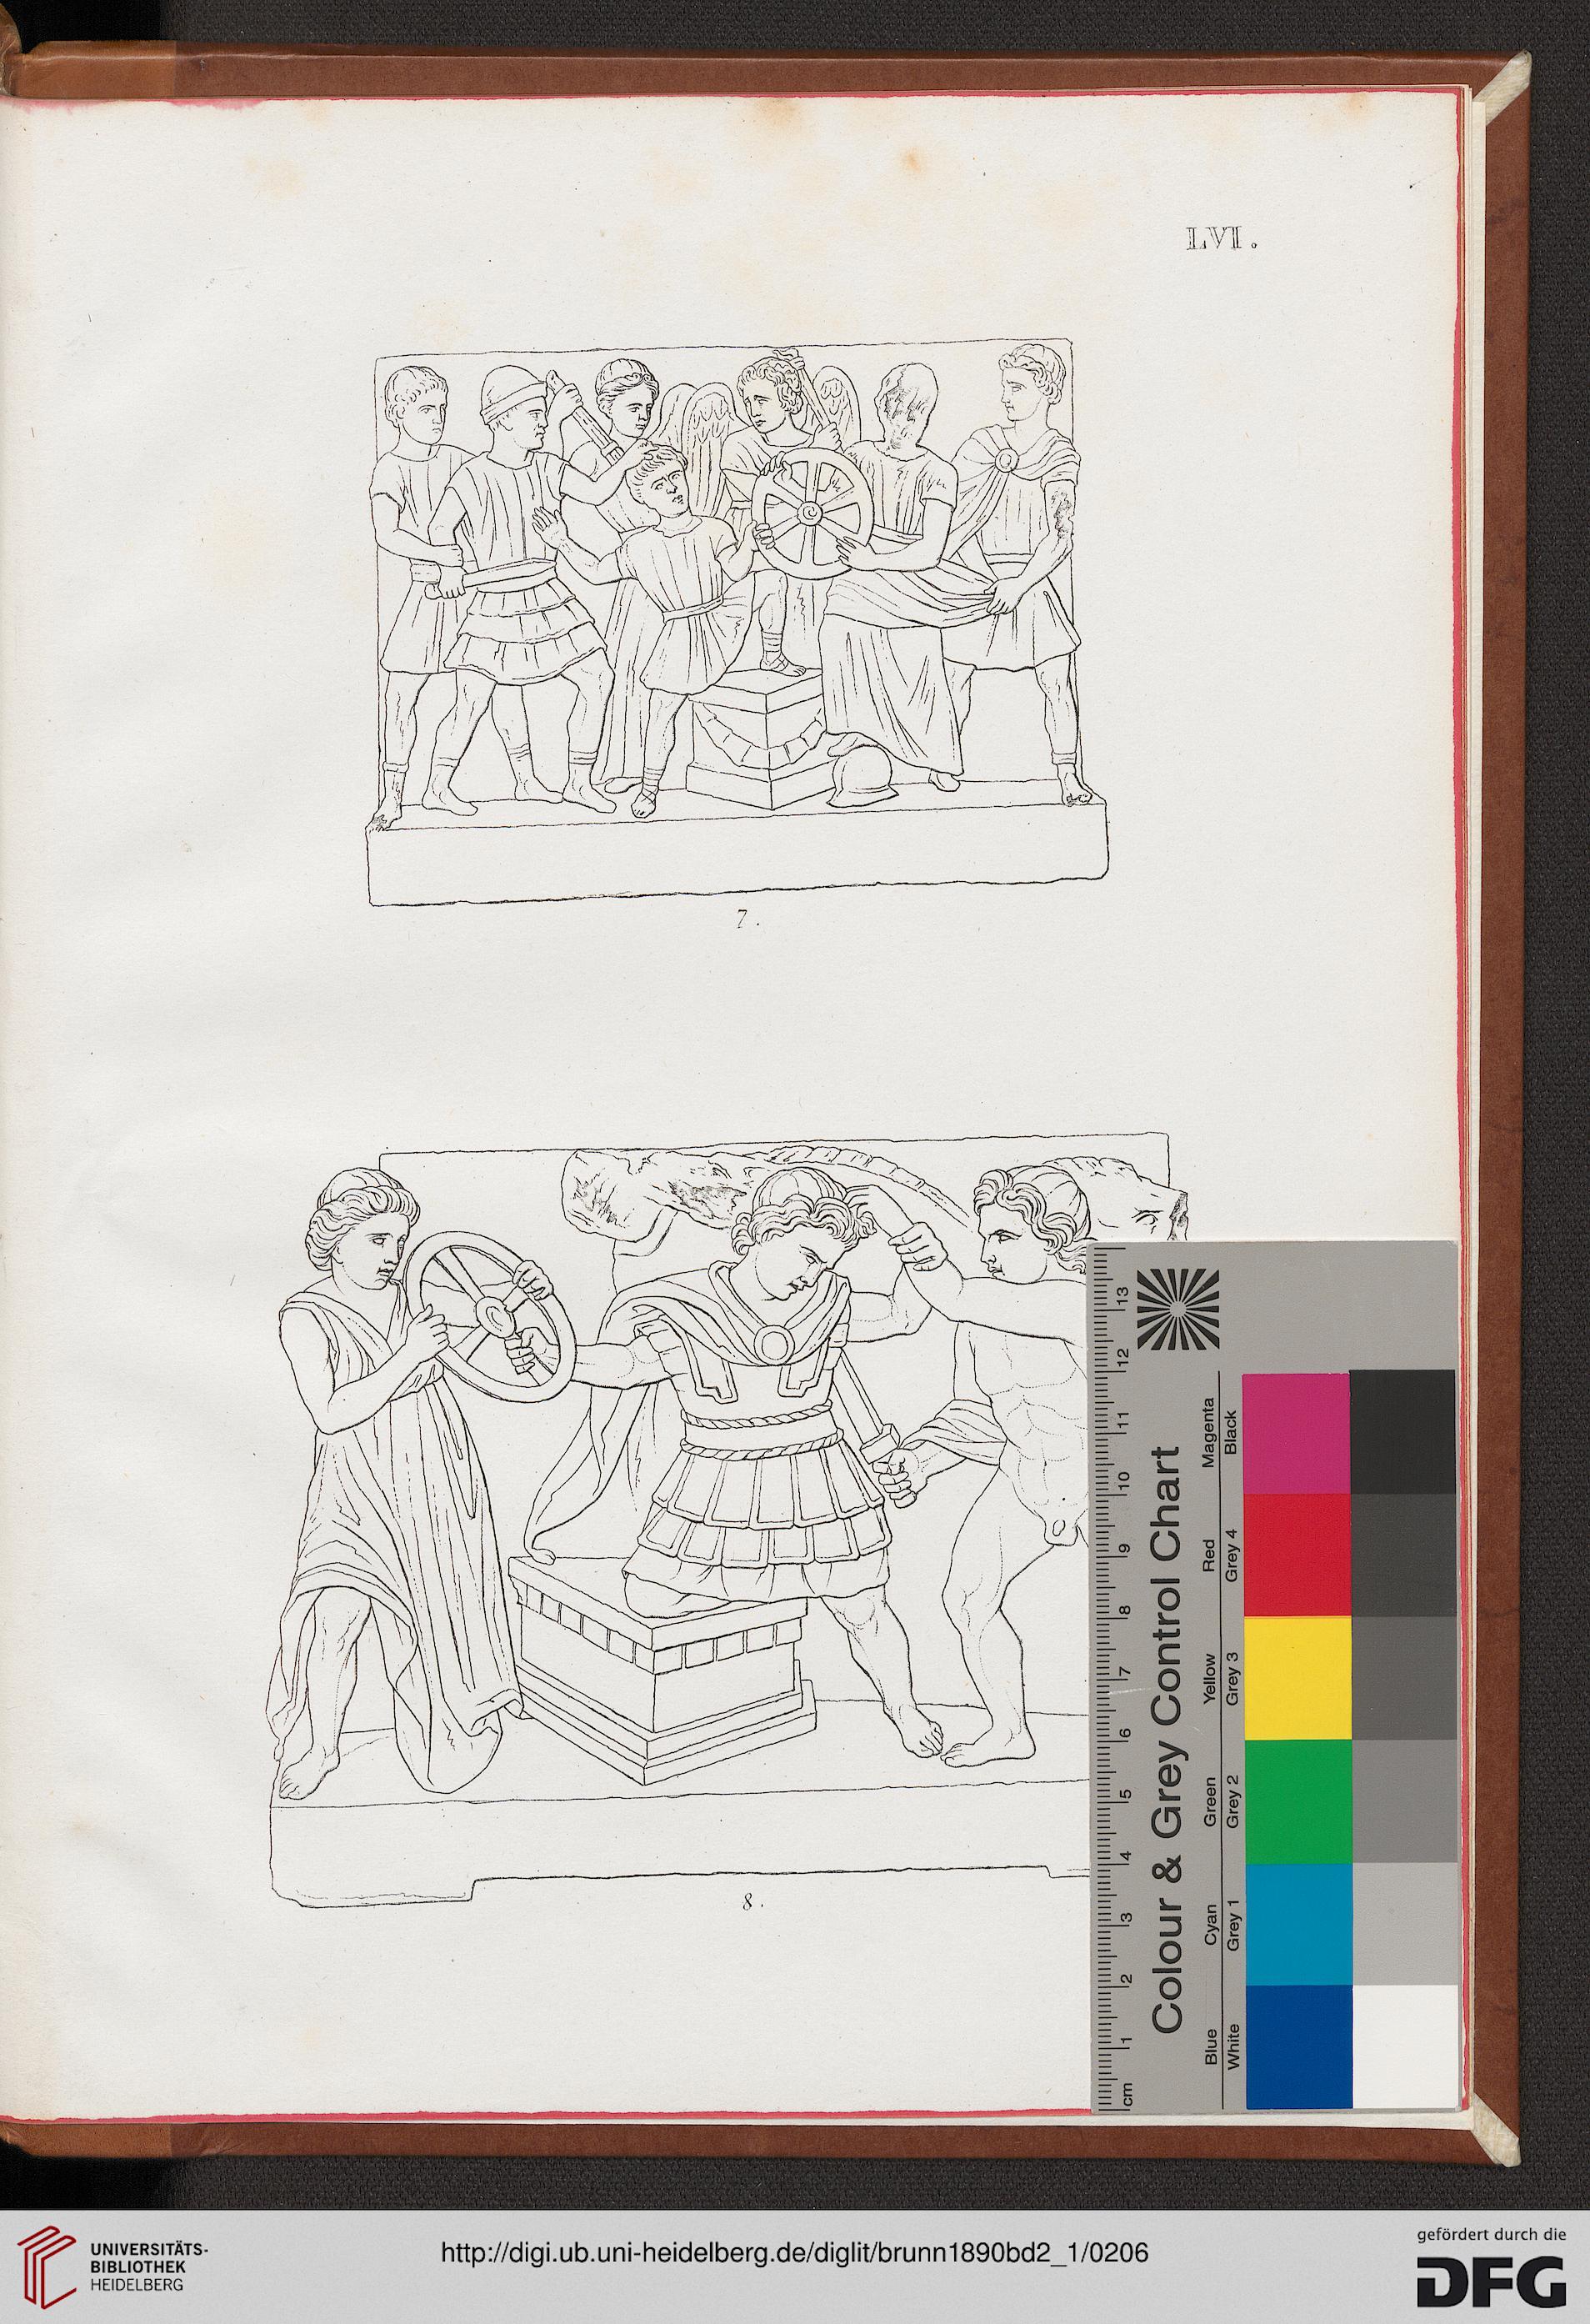 LVI.
7.
8.
13
12
11
10
9
8
7
6
5
4
3
2
1
cm
Colour & Grey Control Chart
Blue Cyan Green Yellow Red Magenta
White Grey 1 Grey 2 Grey 3 Grey 4 Black
UNIVERSITÄTS-
BIBLIOTHEK
HEIDELBERG
http://digi.ub.uni-heidelberg.de/diglit/brunn1890bd2_1/0206
gefördert durch die
DFG